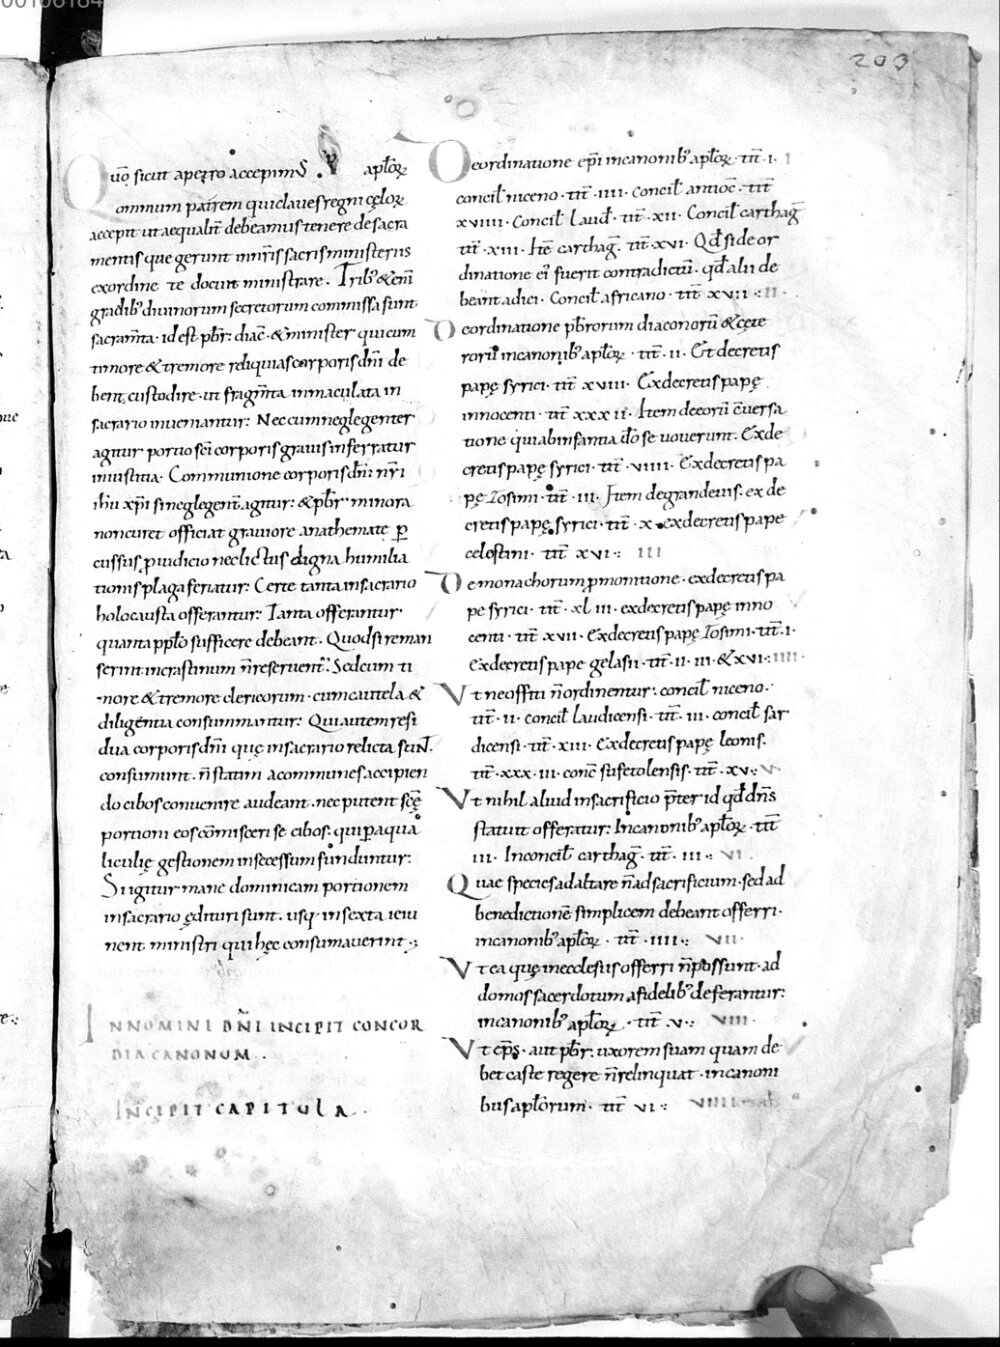 203
Quō sicut apetro accepimus aptōꝝ
omnium patrem qui claues regni cęloꝝ
accepit ut aequalit̄ debeamus tenere de sacra
mentis que gerunt in nr̄is sacris ministeriis
exordine te docuit ministrare. Trib; & eni͞
gradib; diuinorum secretorum commissa sunt
sacram̄ta· id est pb̄r· diac̄· & minister qui cum
timore & tremore reliquias corporis dn̄i de
bent custodire· in fragm̄ta inmaculata in
sacrario inueniantur: Nec cum neglegenter
agitur portio sc̄i corporis grauis inferratur
iniustitia· Communione corporis dn̄i nr̄i
ih̄u xp̄i si neglegent̄ agitur: & pb̄r minora
non curet officia
grauiore anathemate ꝑ
cussus
digna humilia
tionis plaga feriatur: Certe tanta insacrario
holocausta offerantur: Tanta offerantur
quanta ppl̄o sufficere debeant. Quod si reman
serint incrastinum n̄ reseruent̄: Sed cum ti
more & tremore clericorum· cum cautela &
diligentia consummantur: Qui autem resi
dua corporis dn̄i quę insacrario relicta sunt.
consumunt. n̄ statim a communes accipien
do cibos conuenire audeant. nec putent sc̄ę
portioni eos com̄isceri se cibos. qui p aqua
liculię gestionem insecessum funduntur:
Si igitur mane dominicam portionem
insacrario edituri sunt. usq· in sexta ieiu
nent ministri qui hęc consumauerint·;
INNOMINI DN̄I INCIPIT CONCOR
DIA CANONUM .
INCIPIT CAPITULA .
De ordinatione ep̄i incanonib; aptōꝝ· tit̄· i· i
concil̄ niceno· tit̄· iiii· concil̄ antioc̄· tit̄
xviiii· Concil̄ laud̄· tit̄· xii· Concil̄ carthag̅
tit̄· xiii· Itē carthag̅· tit̄ xvi· Qd̄ si de or
dinatione ei͛ fuerit contradictū· qd̄ alii de
beant adici· Concil̄ africano· tit̄ xvii·: ii·
De ordinatione pb̄rorum diaconorū & cęte
rorū incanonib; aptōꝝ· tit̄· ii· Et decretis
papę syrici· tit̄ xviii· Ex decretis papę
innocenti· tit̄ xxxii· Item de eorū c̄uersa
tione qui ab infantia do̅ se uouerunt. Ex de
cretis papę syrici· tit̄· viiii· Ex decretis pa
pę Zosimi· tit̄· iii· Item de grandeuis· ex de
cretis papę syrici· tit̄· x· ex decretis pape
celestini· tit̄ xvi·: iii
De monachorum p̄monitione· ex decretis pa
pe syrici· tit̄· xliii· ex decretis papę inno
centi· tit̄ xvii· Ex decretis papę Zosimi· tit̄· i·
Ex decretis pape gelasii· tit̄· ii· iii· & xvi·: iiii·
Vt neoffiti n̄ ordinentur· concil̄ niceno·
tit̄· ii· concil̄ laudicensi· tit̄· iii· concil̄ sar
dicensi· tit̄· xiii· Ex decretis papę leonis·
tit̄· xxxiii· conc̄ sufetolensis· tit̄· xv·: v·
Vt nihil aliud in sacrificio p̄ter id qd̄ dn̄s
statuit offeratur: Incanonib; aptōꝝ· tit̄
iii· Inconcil̄ carthag̅· tit̄· iii·: vi·
Quae species ad altare n̄ ad sacrificium· sed ad
benedictionē simplicem debeant offerri·
incanonib; aptōꝝ· tit̄· iiii·: vii·
Vt ea quę inecclesiis offerri n̄ possunt· ad
domos sacerdotum a fidelib; deferantur:
incanonib; aptōꝝ· tit̄· v·: viii·
Vt ep̄s· aut pb̄r· uxorem suam quam de
bet caste regere n̄ relinquat· incanoni
bus apl̄orum· tit̄ vi·: viiii